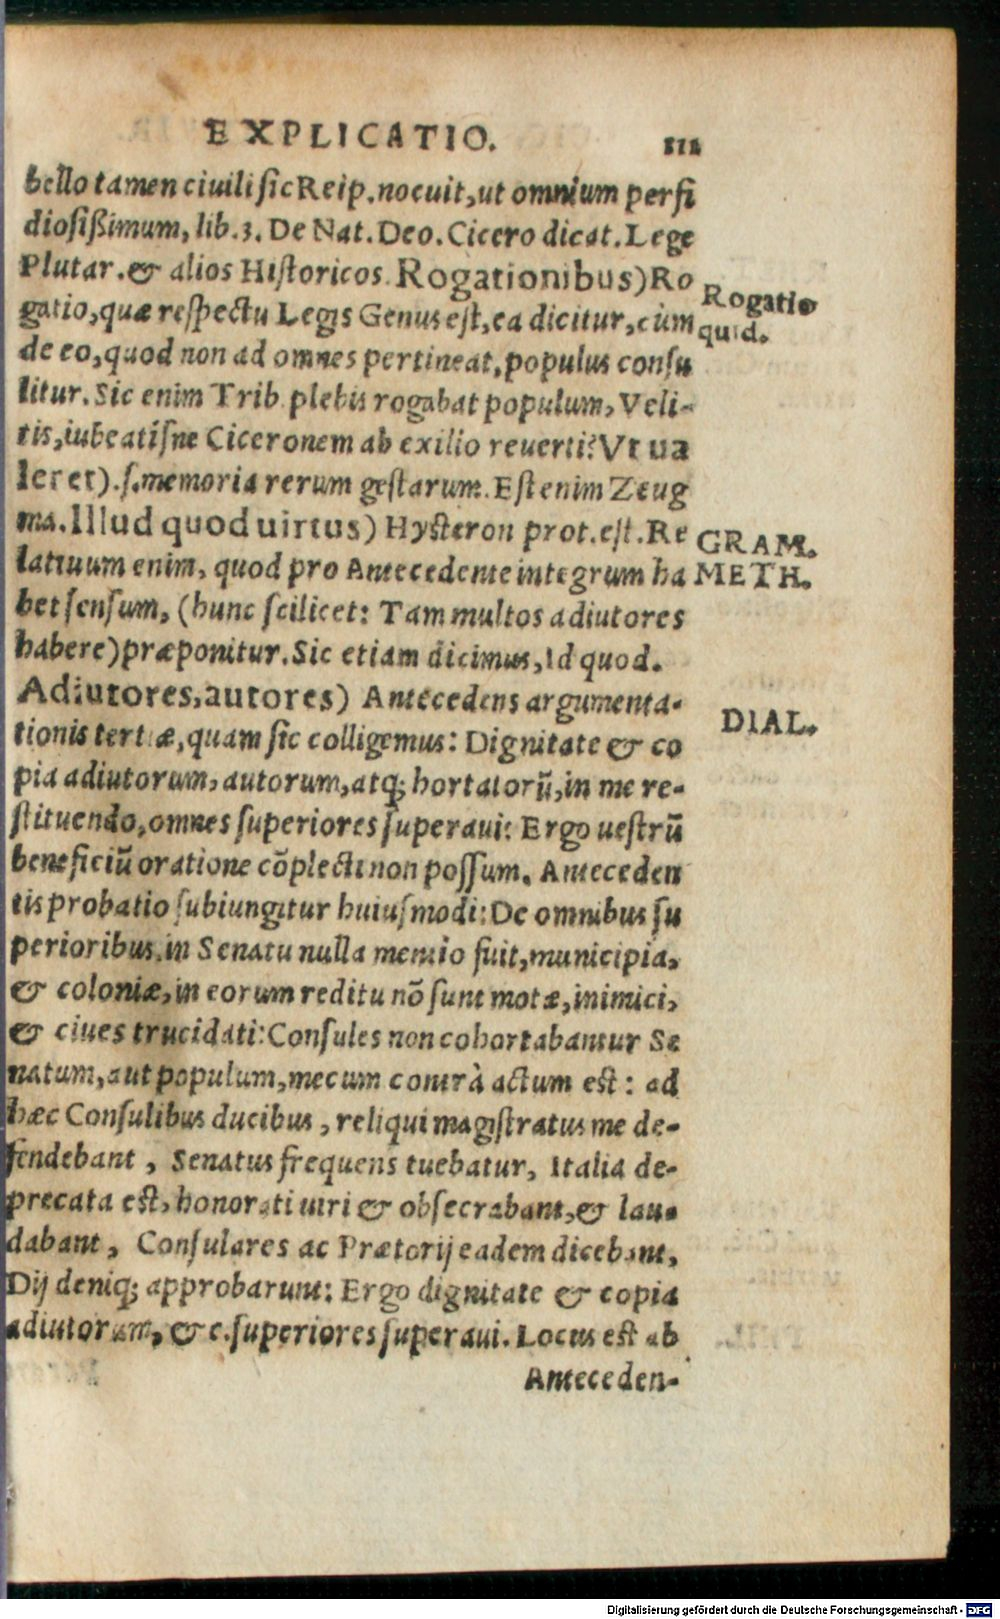 EXPLICATIO. 111
bello tamen ciuili sic Reip. nocuit, ut omnium perfi
diosißimum, lib. 3. De Nat. Deo. Cicero dicat. Lege
Plutar. & alios Historicos. Rogationibus) Ro
Rogatio
gatio, quæ respectu Legis Genus est, ea dicitur, cùm
quid.
de eo, quod non ad omnes pertineat, populus consu
litur. Sic enim Trib. plebis rogabat populum, Veli-
tis, iubeatisne Ciceronem ab exilio reuerti? Vt ua
leret). s. memoria rerum gestarum. Est enim Zeug
ma. Illud quod uirtus) Hysteron prot. est. Re
GRAM.
latiuum enim, quod pro Antecedente integrum ha
METH.
bet sensum, (hunc scilicet: Tam multos adiutores
habere) præponitur. Sic etiam dicimus, Id quod.
Adiutores, autores) Antecedens argumenta-
DIAL.
tionis tertiæ, quam sic colligemus: Dignitate & co
pia adiutorum, autorum, atq; hortatorū, in me re-
stituendo, omnes superiores superaui: Ergo uestrū
beneficiū oratione cōplecti non possum. Anteceden
tis probatio subiungitur huiusmodi: De omnibus su
perioribus, in Senatu nulla mentio fuit, municipia,
& coloniæ, in eorum reditu nō sunt motæ, inimici,
& ciues trucidati: Consules non cohortabantur Se
natum, aut populum, mecum contrà actum est: ad
hæc Consulibus ducibus, reliqui magistratus me de-
fendebant, Senatus frequens tuebatur, Italia de-
precata est, honorati uiri & obsecrabant, & lau-
dabant, Consulares ac Prætorij eadem dicebant,
Dij deniq; approbarunt: Ergo dignitate & copia
adiutorum, & c. superiores superaui. Locus est ab
Anteceden-
Digitalisierung gefördert durch die Deutsche Forschungsgemeinschaft - DFG